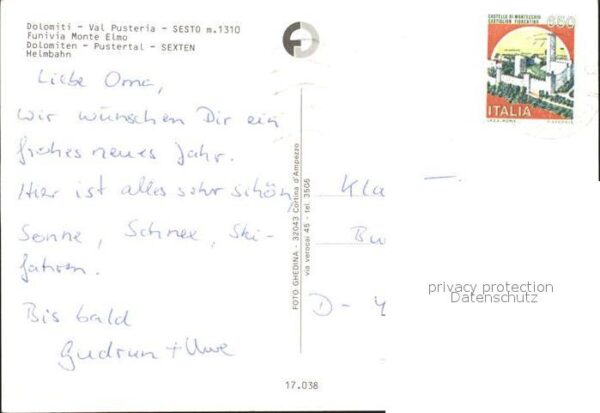 Dolomiti - Val Pusteria - SESTO m.1310
Funivia Monte Elmo
Dolomiten - Pustertal - SEXTEN
Helmbahn
Liebe Oma,
wir wünschen Dir ein
frohes neues Jahr.
Hier ist alles sehr schön,
Sonne, Schnee, Ski-
fahren.
Bis bald
Gudrun + Uwe
FOTO GHEDINA - 32043 Cortina d'Ampezzo
via verocai 45 - tel. 3506
CASTELLO DI MONTECCHIO
CASTIGLION FIORENTINO
650
ITALIA
Kla
Bu
D-4
privacy protection
Datenschutz
17.038